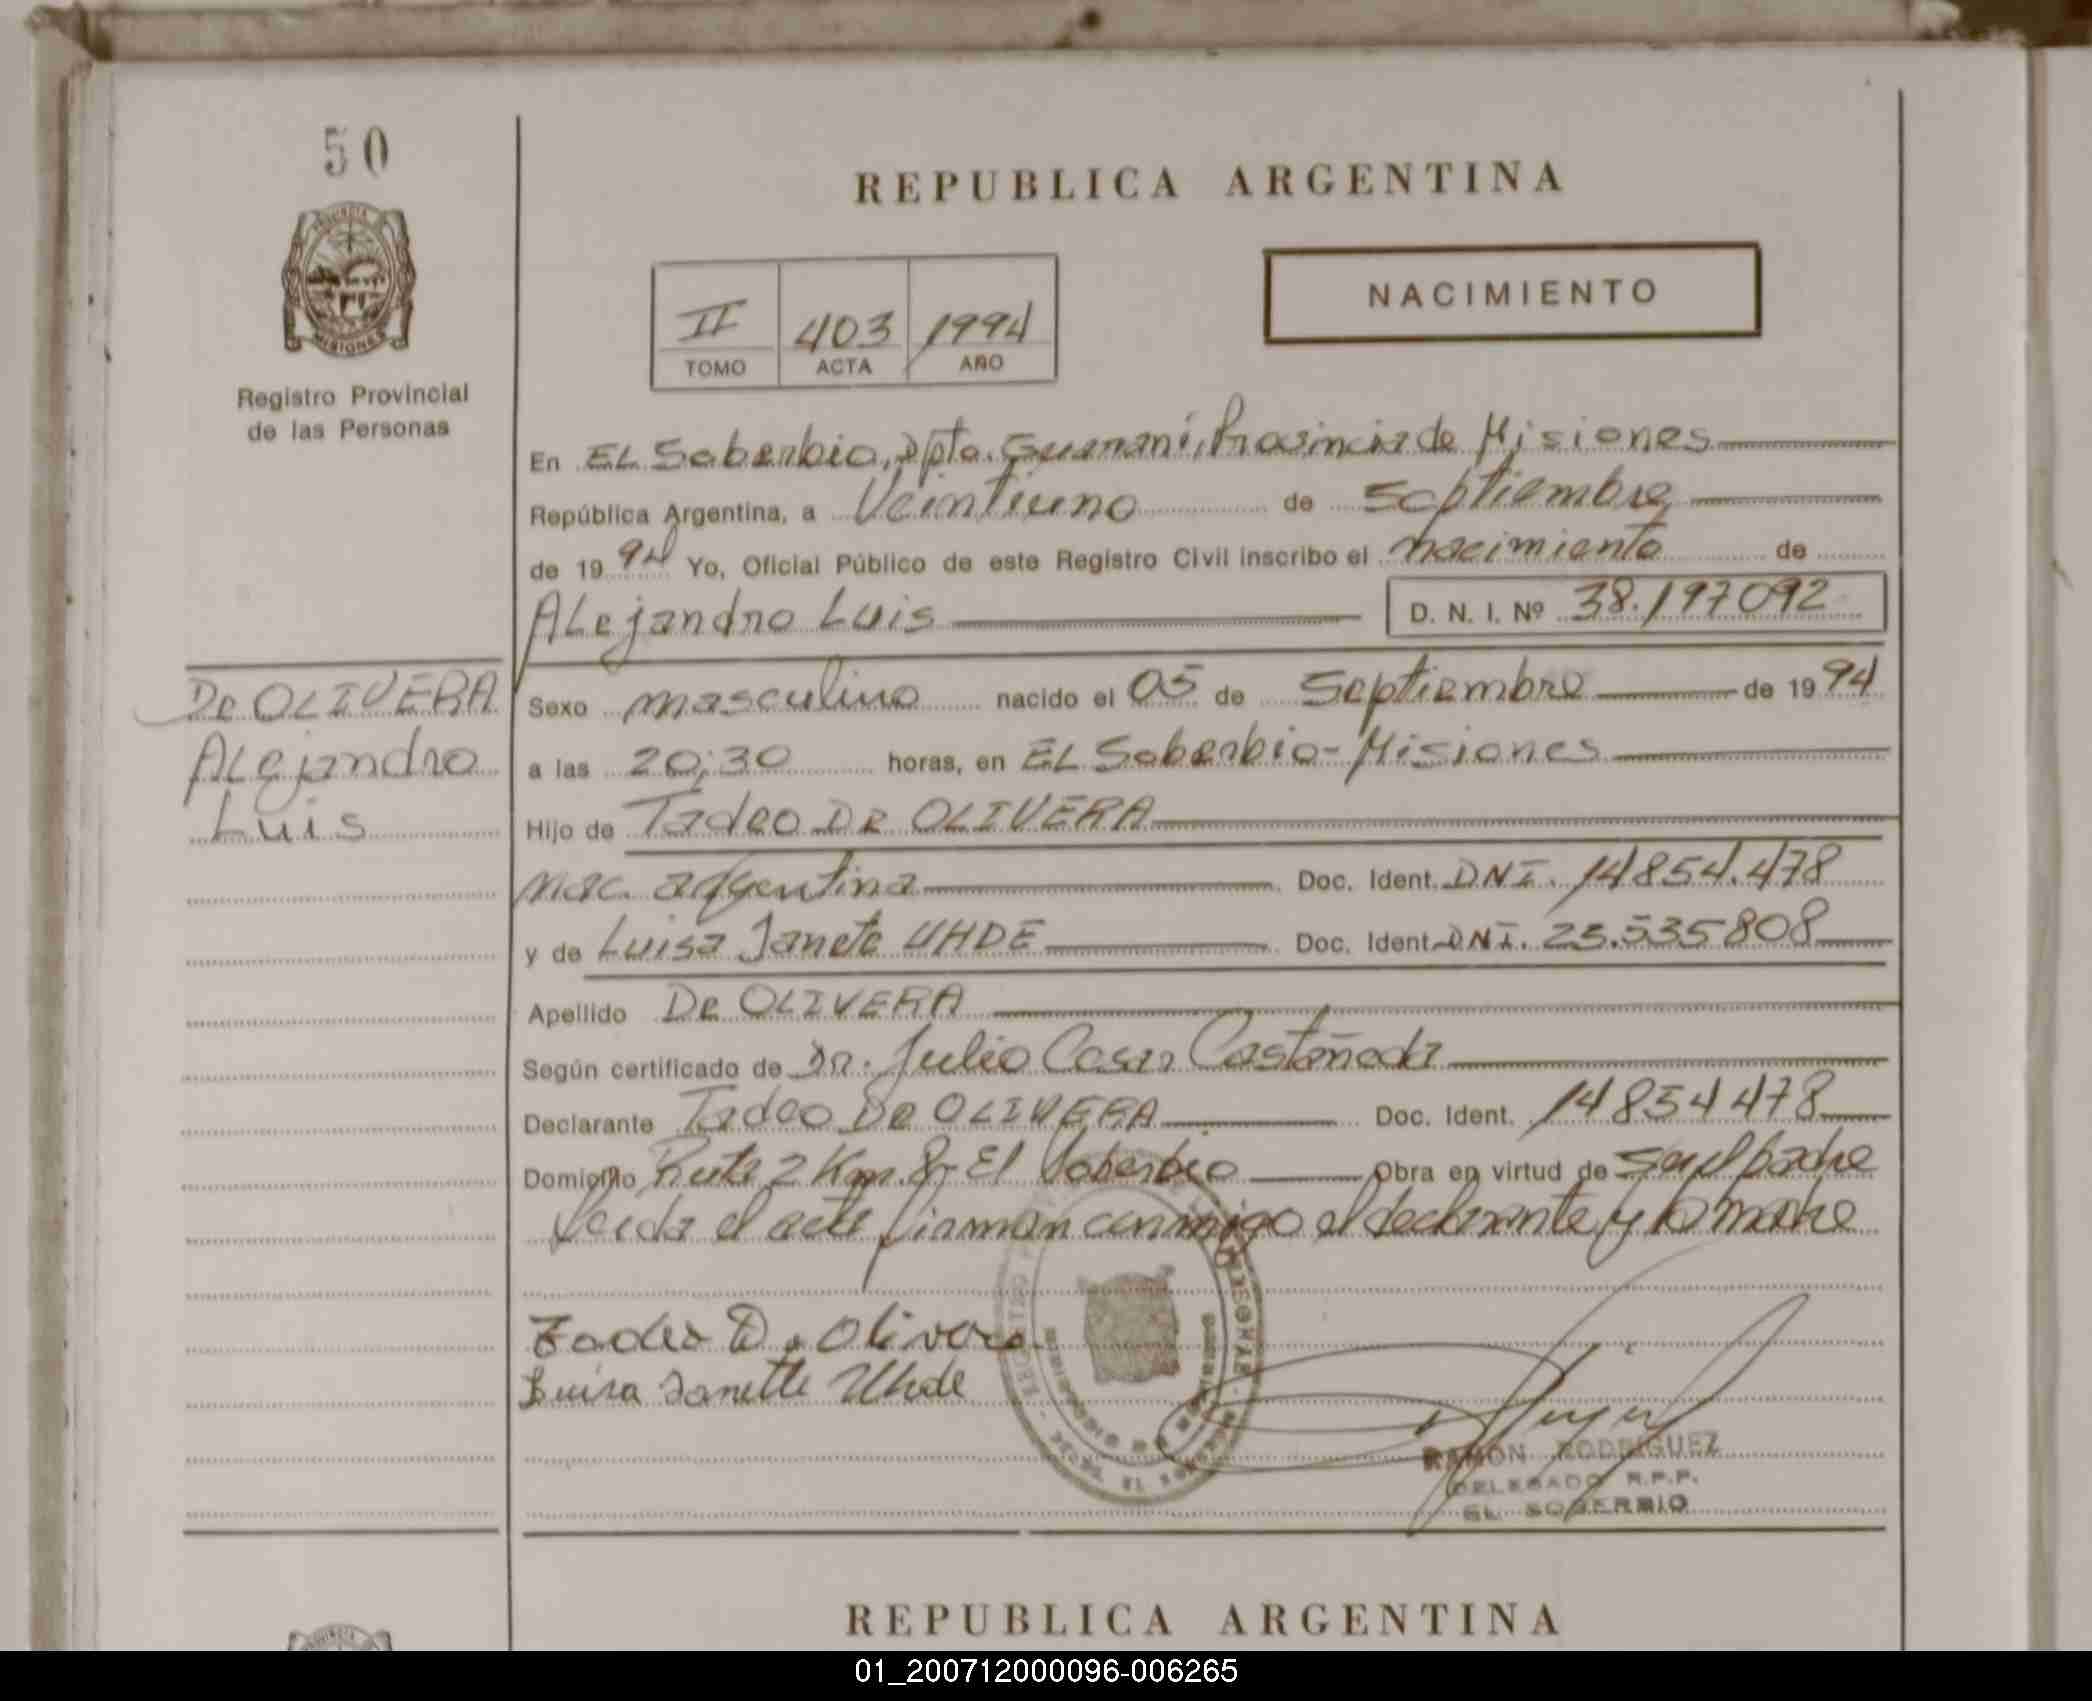 50
REPUBLICA ARGENTINA
PROVINCIA
MISIONES
NACIMIENTO
II 403 1994
TOMO ACTA AÑO
Registro Provincial
de las Personas
En EL Soberbio, Dpto. Guarani, Provincia de Misiones
República Argentina, a Veintiuno de Septiembre
de 1994 Yo, Oficial Público de este Registro Civil inscribo el nacimiento de
Alejandro Luis D. N. I. Nº 38.197092
De OLIVERA
Alejandro
Luis
Sexo masculino nacido el 05 de Septiembre de 1994
a las 20;30 horas, en EL Soberbio-Misiones
Hijo de Tadeo De OLIVERA
nac. argentina Doc. Ident. DNI. 14854.478
y de Luisa Janete UHDE Doc. Ident. DNI. 23.535808
Apellido De OLIVERA
Según certificado de Dr. Julio Cesar Castañeda
Declarante Tadeo De OLIVERA Doc. Ident. 14854478
Domicilio Ruta 2 Km. 8- El Soberbio Obra en virtud de ser el padre
Leida el acta firman conmigo el declarante y la madre
Tadeo De Olivera
Luisa Janette Uhde
RAMON RODRIGUEZ
DELEGADO R.P.P.
EL SOBERBIO
REPUBLICA ARGENTINA
PROVINCIA
01_200712000096-006265